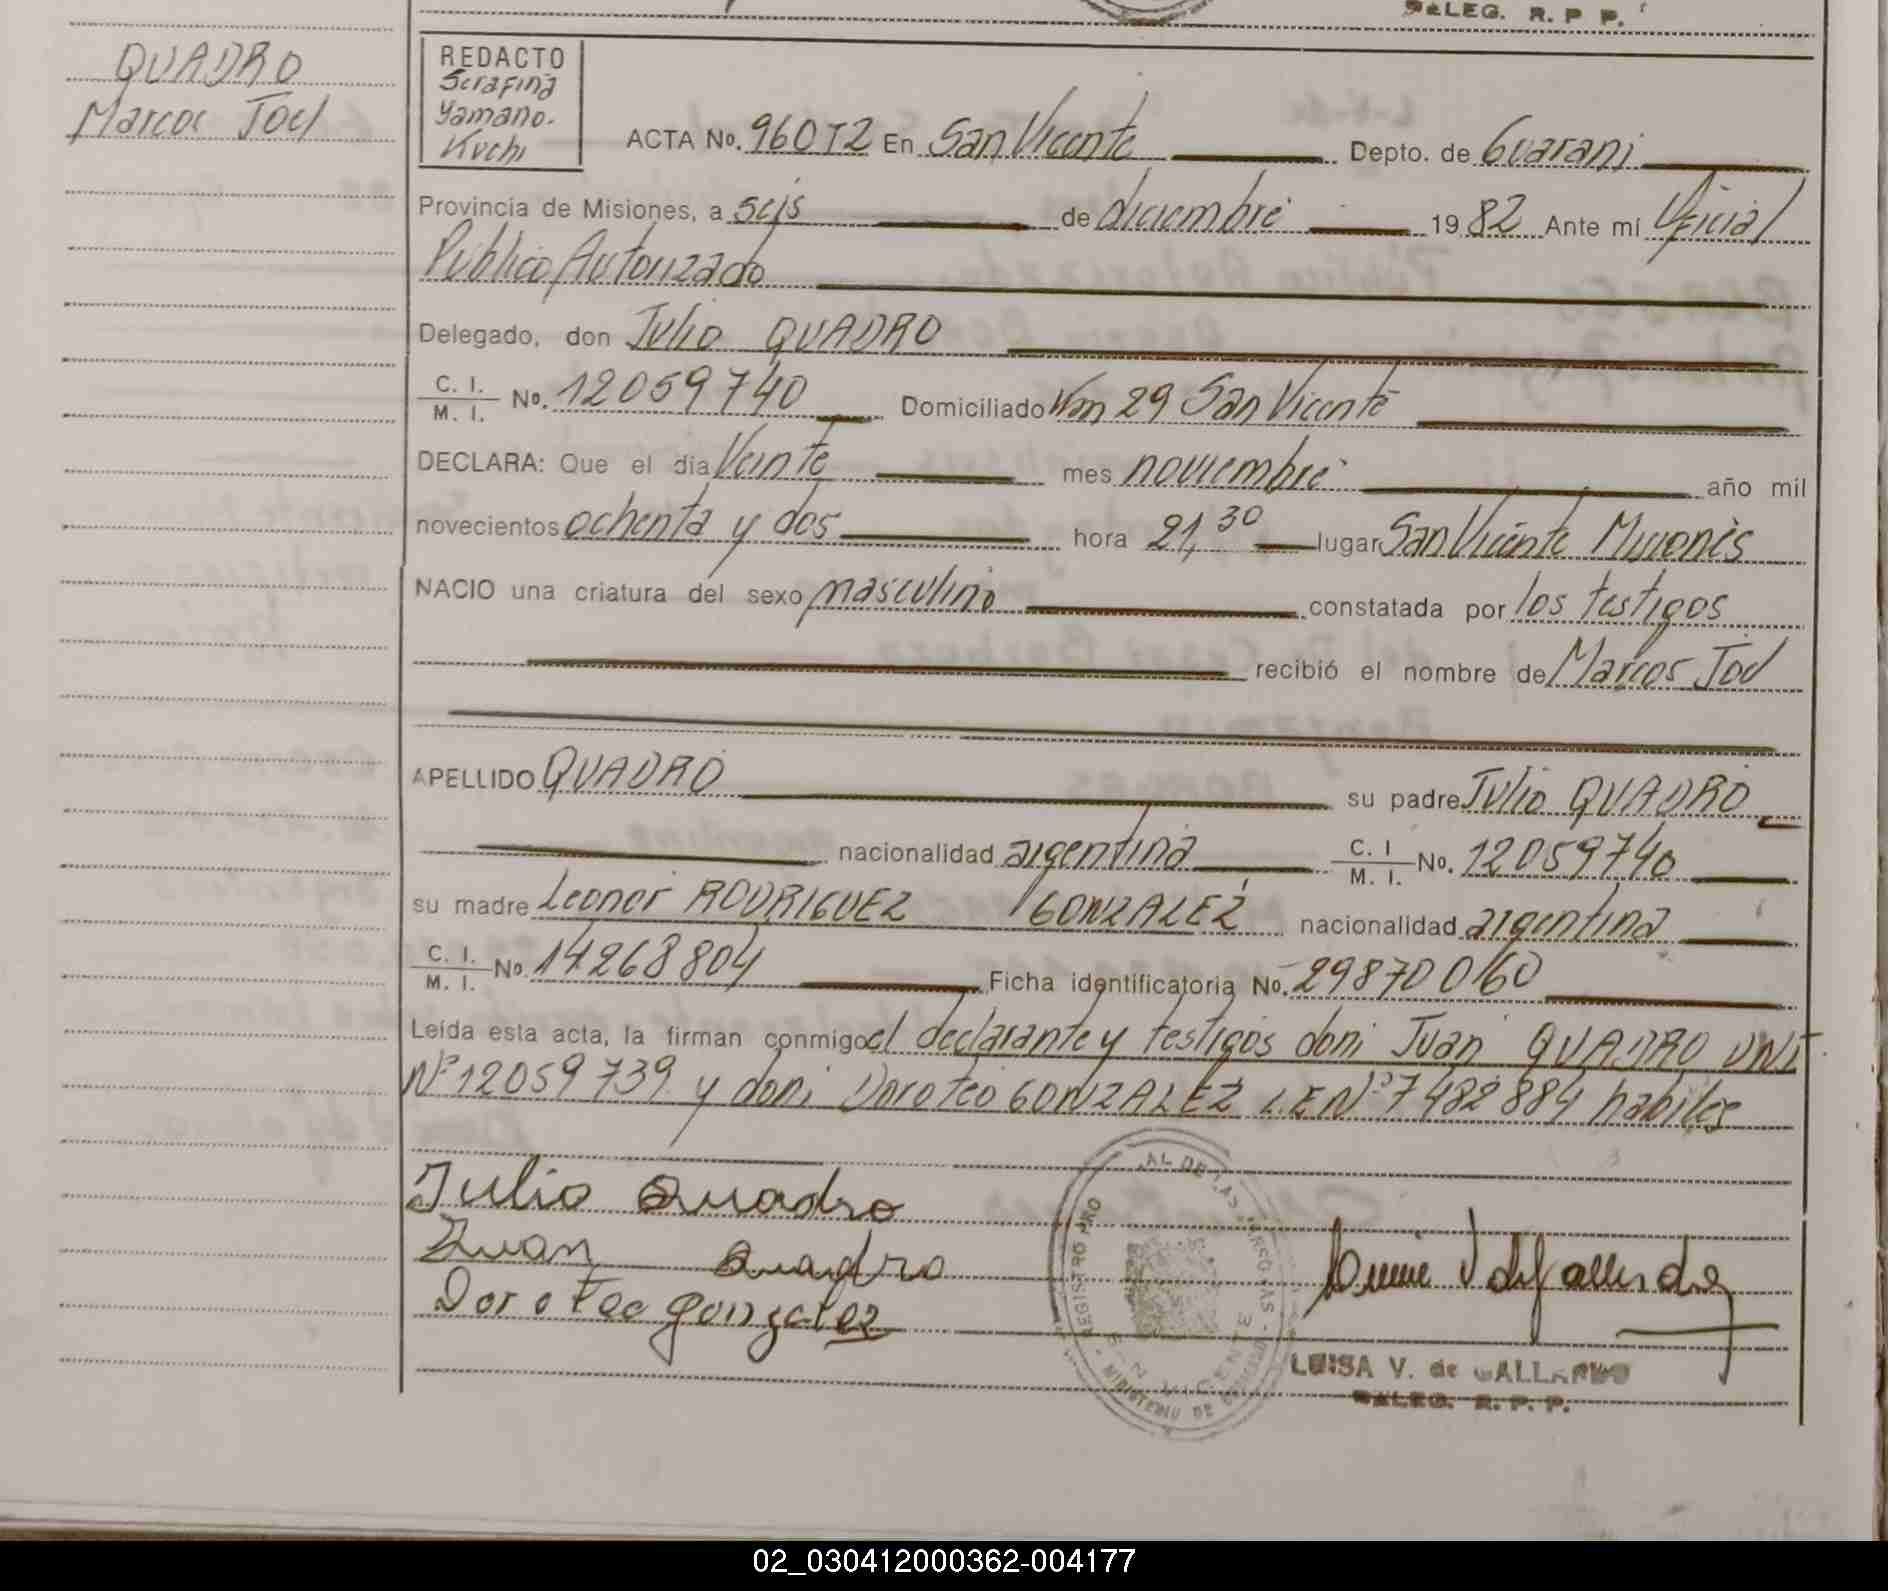 DELEG. R. P P.
QUADRO
Marcos Joel
REDACTO
Serafina
Yamano-
Kuchi
ACTA No. 960T2 En San Vicente Depto. de Guarani
Provincia de Misiones, a seis de diciembre 1982 Ante mí Oficial
Público Autorizado
Delegado, don Julio QUADRO
C. I.
M. I. No. 12059740 Domiciliado Km 29 San Vicente
DECLARA: Que el dia Veinte mes noviembre año mil
novecientos ochenta y dos hora 21,30 lugar San Vicente Misiones
NACIO una criatura del sexo masculino constatada por los testigos
recibió el nombre de Marcos Joel
APELLIDO QUADRO su padre Julio QUADRO
nacionalidad argentina C. I M. I. No. 12059740
su madre Leonor RODRIGUEZ GONZALEZ nacionalidad argentina
C. I.
M. I. No. 14268804 Ficha identificatoria No. 29870060
Leída esta acta, la firman conmigo el declarante y testigos don: Juan QUADRO DNI
Nº 12059739 y don: Doroteo GONZALEZ L.E Nº 7482884 habiles
Julio Quadro
Juan Quadro
Doroteo gonzalez
REGISTRO PRO AL DE LAS PERSONAS
MINISTERIO DE GOBIERNO
VICENTE
LUISA V. de GALLARDO
DALEG. R. P. P.
02_030412000362-004177